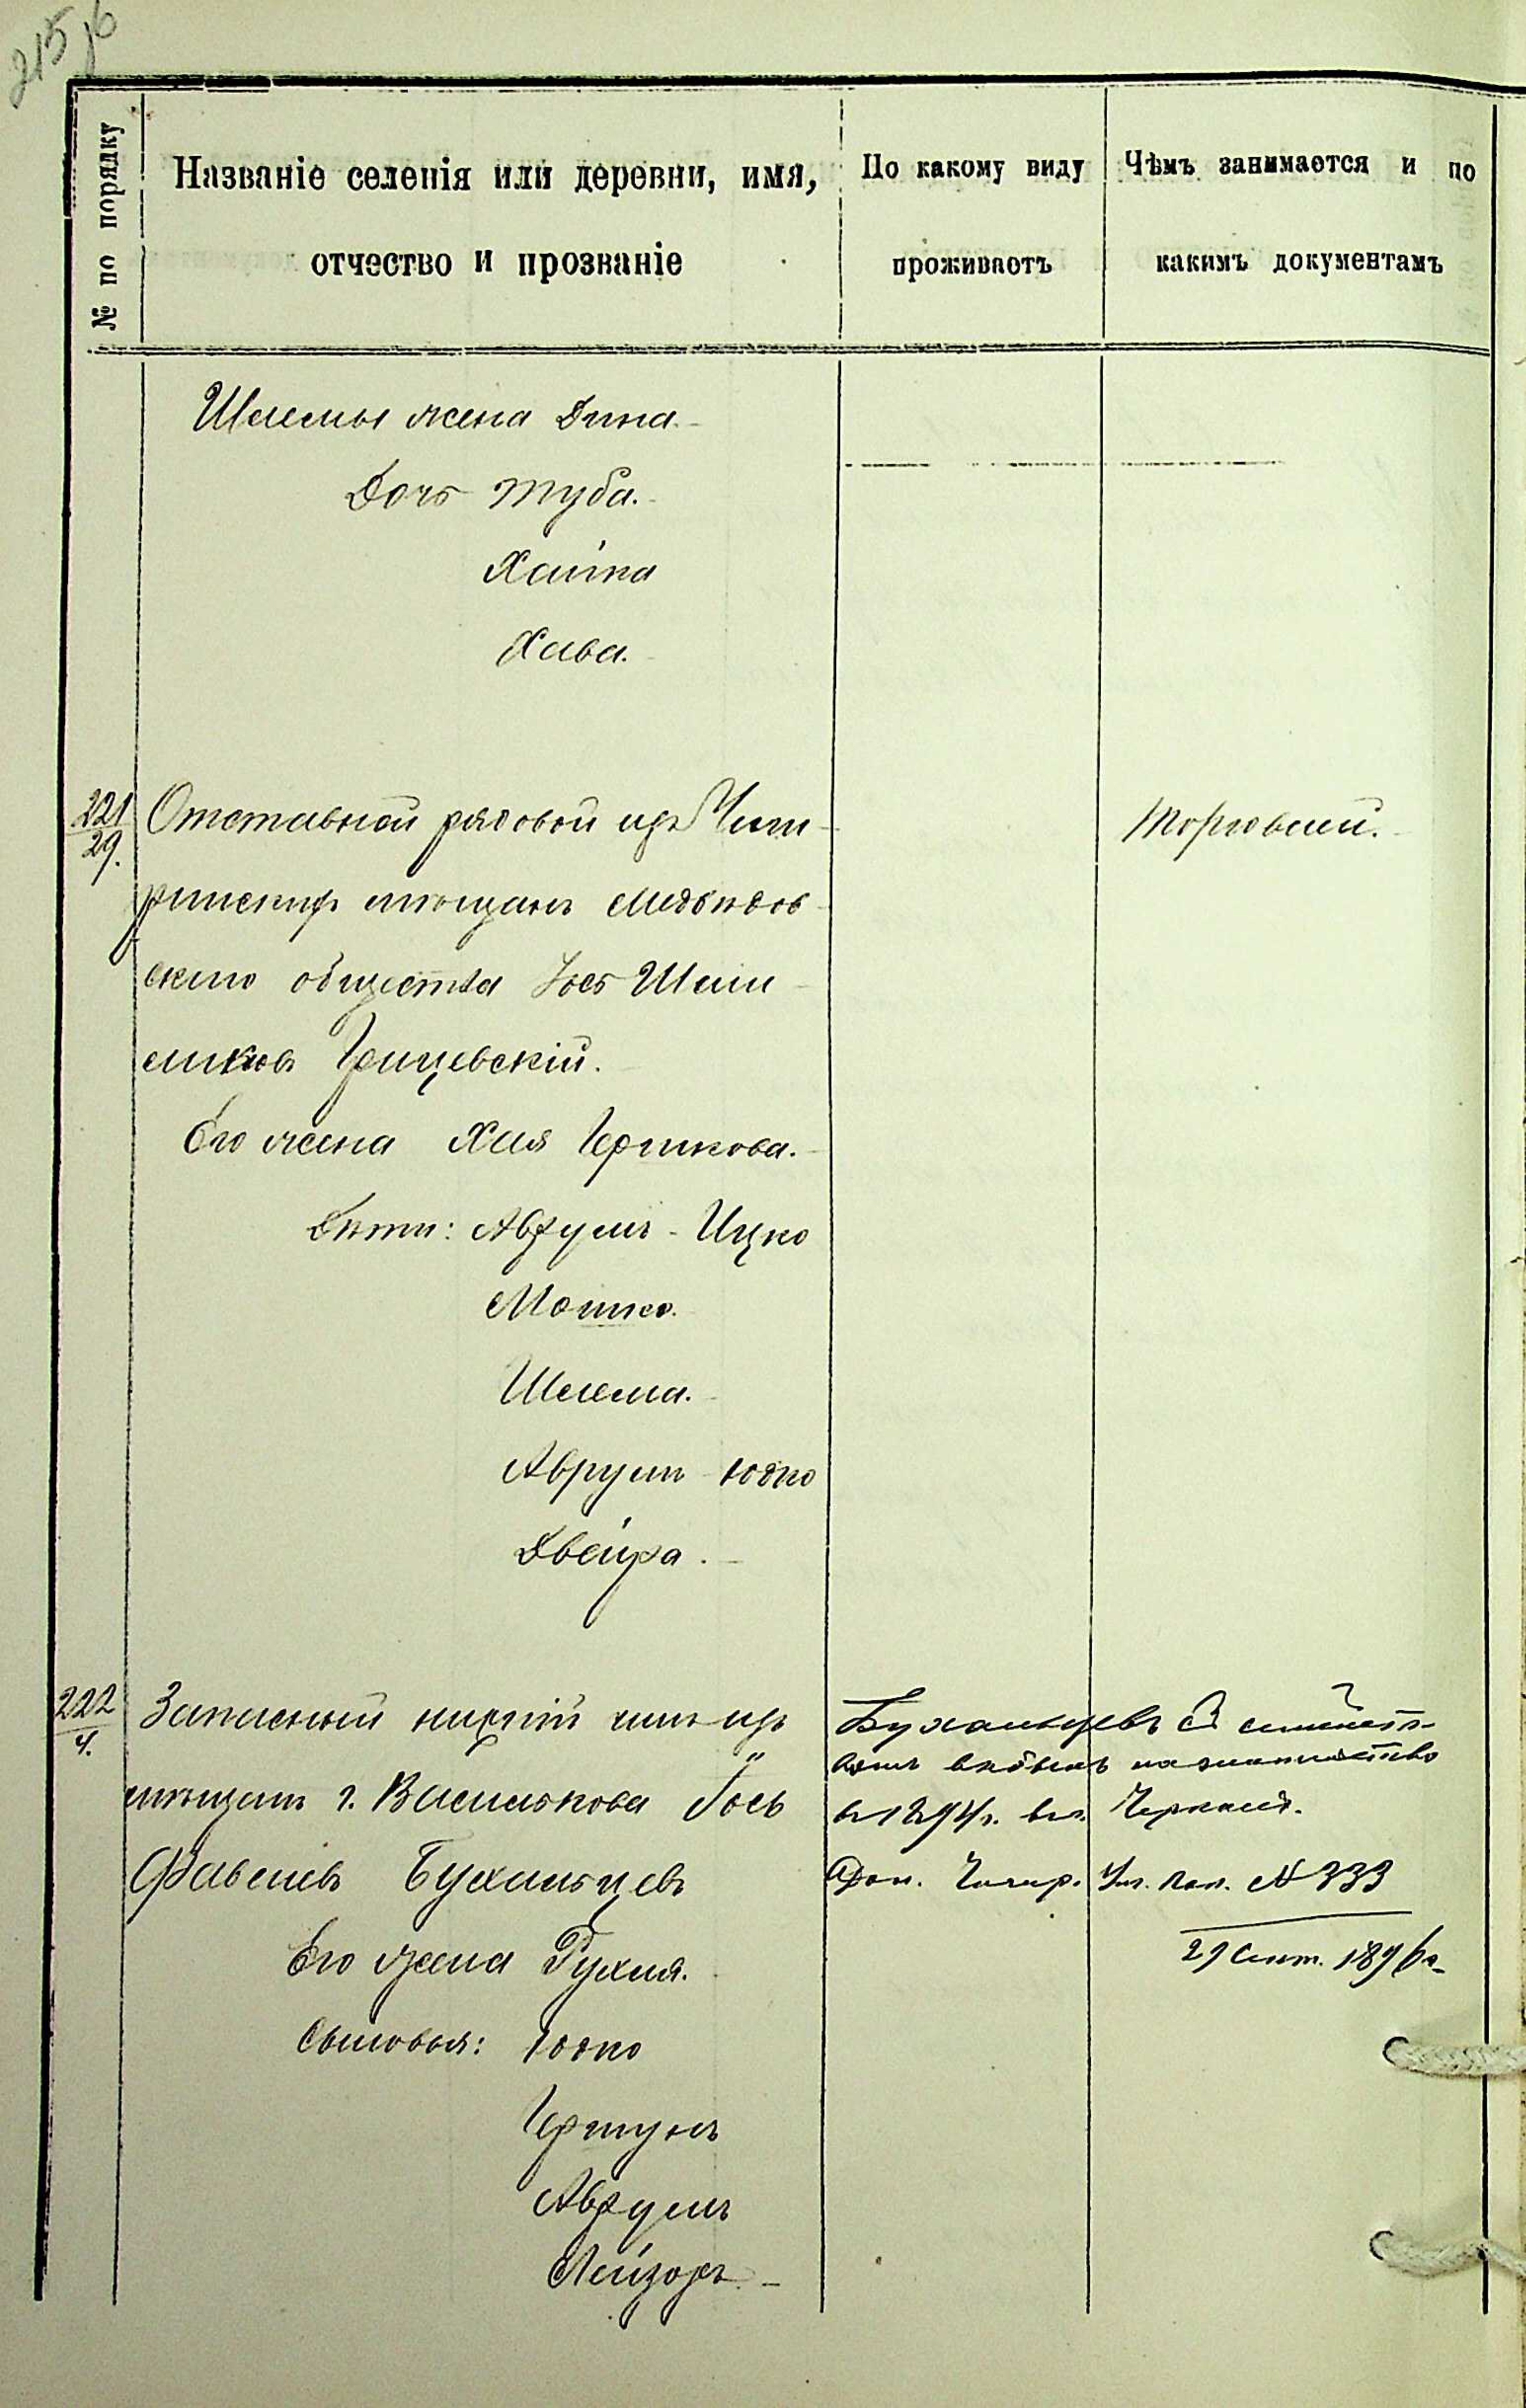 215 об
№ по порядку
Названіе селенія или деревни, имя,
отчество и прозваніе
По какому виду
проживаетъ
Чѣмъ занимается и по
какимъ документамъ
Шлемы жена Дина.
Дочь Туба.
Хайка
Хава.
221
29.
Отставной рядовой изъ Чиги-
ринскихъ мѣщанъ Медвѣдов-
скаго общества Іось Шлии-
Грицевскій.
Его жена Хая Гершкова.
Дѣти: Аврумъ-Ицко
Мошко.
Шлема.
Аврумъ-Юдко
Двейра.
Торговлей.
222
4.
Запасный нижній чинъ изъ
мѣщанъ г. Василькова Іось
Файвелевъ Бухальцевъ
Его жена Рухля.
Сыновья: Юдко
Гершунъ
Аврумъ
Лейзоръ.
Бухальцевъ съ семейст-
вомъ на жительство
въ 1894 г. въ г. Черкассы.
Дон. Чигир. Уѣ. Пол. № 333
29 Сент. 1896 г.